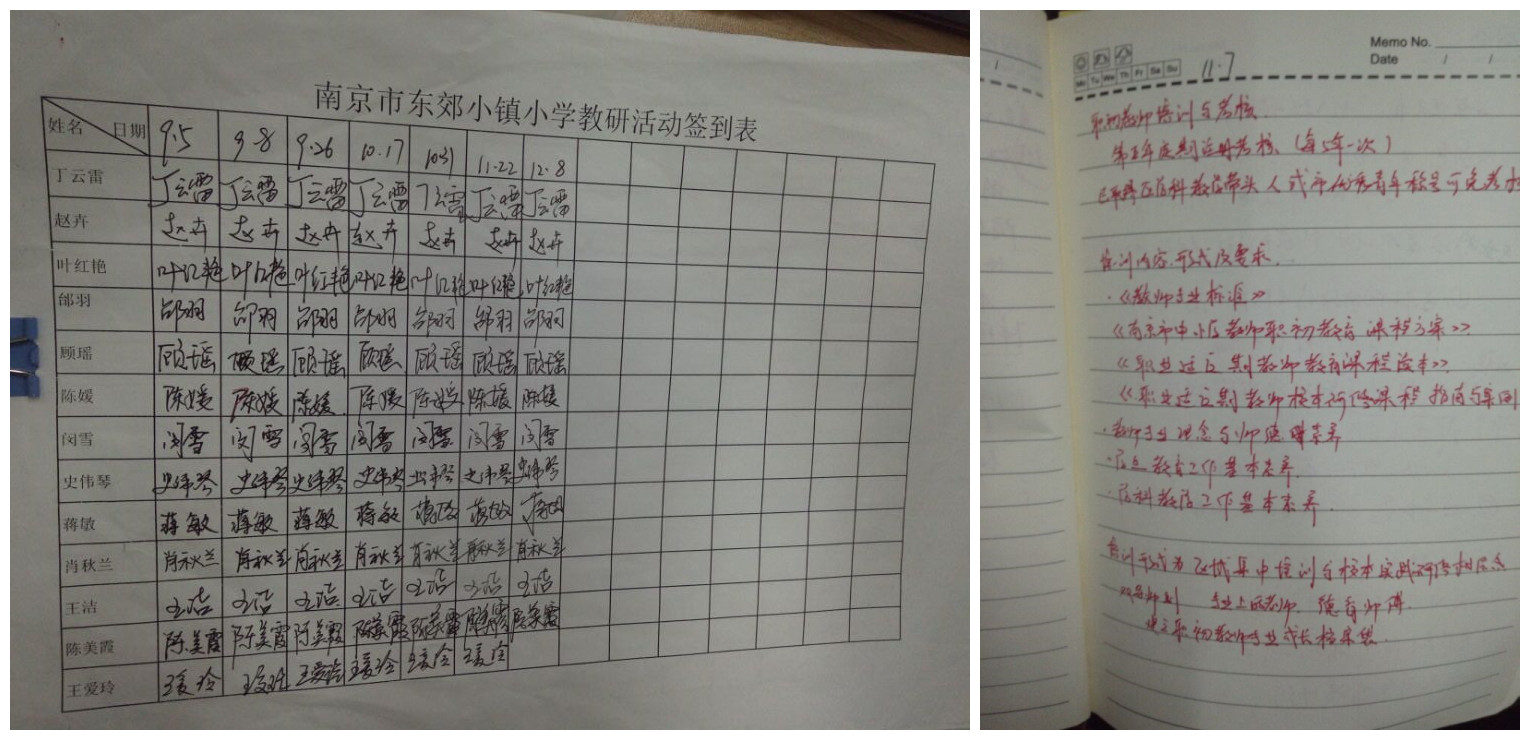 南京市东郊小镇小学教研活动签到表
姓名 日期 9.5 9.8 9.26 10.17 10.31 11.22 12.8
丁云雷 丁云雷 丁云雷 丁云雷 丁云雷 丁云雷 丁云雷 丁云雷
赵卉 赵卉 赵卉 赵卉 赵卉 赵卉 赵卉 赵卉
叶红艳 叶红艳 叶红艳 叶红艳 叶红艳 叶红艳 叶红艳 叶红艳
邰羽 邰羽 邰羽 邰羽 邰羽 邰羽 邰羽 邰羽
顾瑶 顾瑶 顾瑶 顾瑶 顾瑶 顾瑶 顾瑶 顾瑶
陈媛 陈媛 陈媛 陈媛 陈媛 陈媛 陈媛 陈媛
闵雪 闵雪 闵雪 闵雪 闵雪 闵雪 闵雪 闵雪
史伟琴 史伟琴 史伟琴 史伟琴 史伟琴 史伟琴 史伟琴 史伟琴
蒋敏 蒋敏 蒋敏 蒋敏 蒋敏 蒋敏 蒋敏 蒋敏
肖秋兰 肖秋兰 肖秋兰 肖秋兰 肖秋兰 肖秋兰 肖秋兰 肖秋兰
王洁 王洁 王洁 王洁 王洁 王洁 王洁 王洁
陈美霞 陈美霞 陈美霞 陈美霞 陈美霞 陈美霞 陈美霞 陈美霞
王爱玲 王爱玲 王爱玲 王爱玲 王爱玲 王爱玲 王爱玲
Memo No.
Date / /
Mo Tu We Th Fr Sa Su 11.7
职初教师培训与考核
第五年定期注册考核（每5年一次）
学科教学带头人或市优秀青年称号可免考核
培训内容、形式及要求
·《教师专业标准》
《南京市中小学教师职初教育课程方案》
《职业适应期教师教育课程读本》
《职业适应期教师校本研修课程指南与案例
·教师专业理念与师德修养
·学科教学工作基本素养
培训形式为区域集中培训与校本实践研修相结合
双导师制 专业上的老师 德育师傅
建立职初教师专业成长档案袋